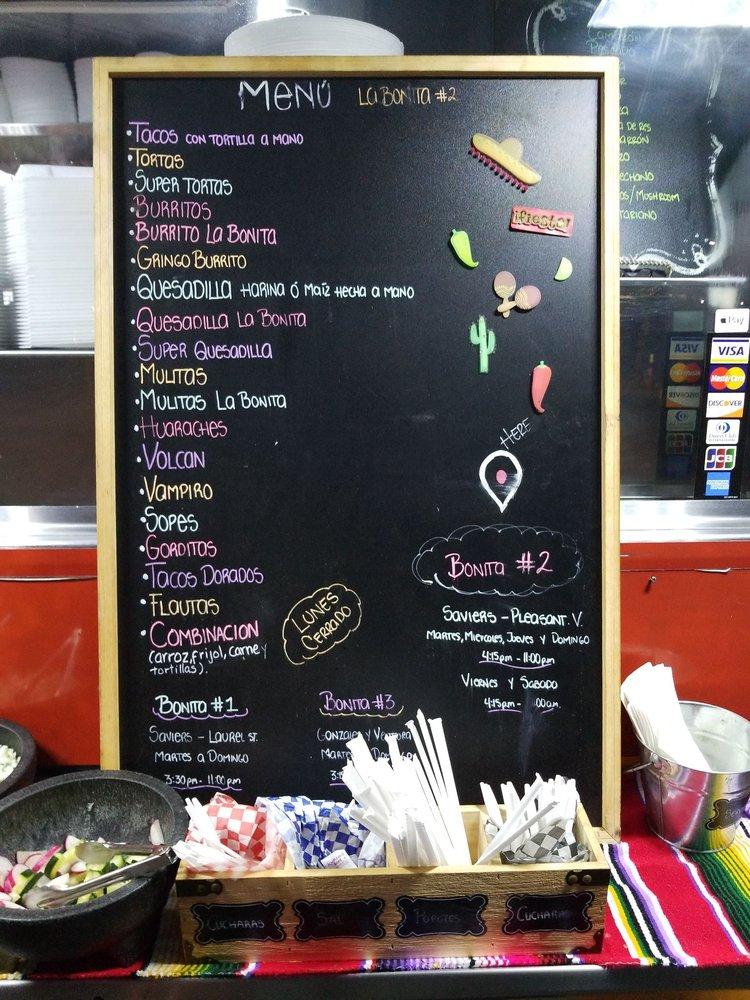 MENÚ LA BONITA #2
• TACOS CON TORTILLA A MANO
• TORTAS
• SUPER TORTAS
• BURRITOS
• BURRITO LA BONITA
• GRINGO BURRITO
• QUESADILLA HARINA Ó MAÍZ HECHA A MANO
• QUESADILLA LA BONITA
• SUPER QUESADILLA
• MULITAS
• MULITAS LA BONITA
• HUARACHES
• VOLCAN
• VAMPIRO
• SOPES
• GORDITAS
• TACOS DORADOS
• FLAUTAS
• COMBINACION
(arroz, frijol, carne y
tortillas).
¡fiesta!
HERE
LUNES
CERRADO
BONITA #2
SAVIERS - PLEASANT. V.
MARTES, MIERCOLES, JUEVES Y DOMINGO
4:15pm - 11:00pm
VIERNES Y SABADO
4:15pm - :00am.
BONITA #1
SAVIERS - LAUREL ST.
MARTES A DOMINGO
3:30pm - 11:00pm
BONITA #3
GONZALES Y VENTURA
CUCHARAS
SAL
POPOTES
CUCHARA
CAMARÓN
PESCADO
A DE RES
ARRÓN
ZO
ECHANO
OS/MUSHROOM
TARIANO
Pay
VISA
VISA
MasterCard
MasterCard
DISCOVER
DISCOVER
Diners Club
INTERNATIONAL
JCB
JCB
AMERICAN
EXPRESS